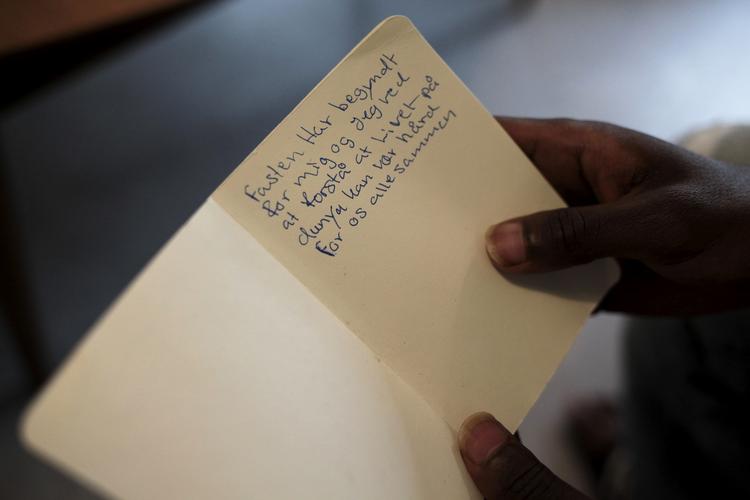 Fasten Har begyndt
for mig og Jeg ved
at forstå at Livet på
dunya kan vær hård
for os alle sammen